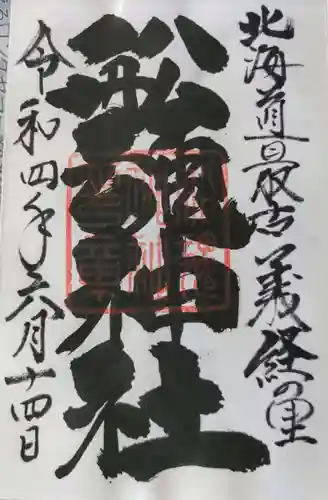 北海道最古義経の里
船魂神社
令和四年六月十四日